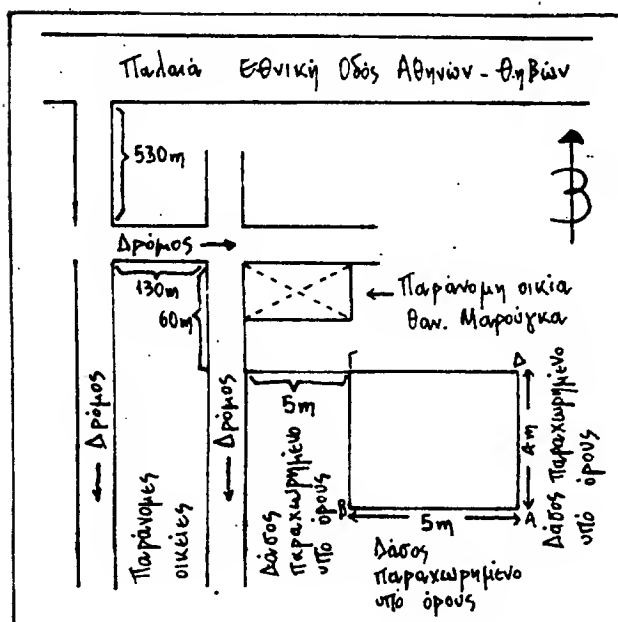 Παλαιά Εθνική Οδός Αθηνών - Θηβών
530m
Β
Δρόμος →
130m
60m
← Παράνομη οικία
Θαν. Μαρούγκα
Γ
Δ
5m
4m
Β
Α
5m
← Δρόμος
Παράνομες
οικείες
← Δρόμος
Δάσος
παραχωρημένο
υπό όρους
Δάσος
παραχωρημένο
υπό όρους
Δάσος παραχωρημένο
υπό όρους